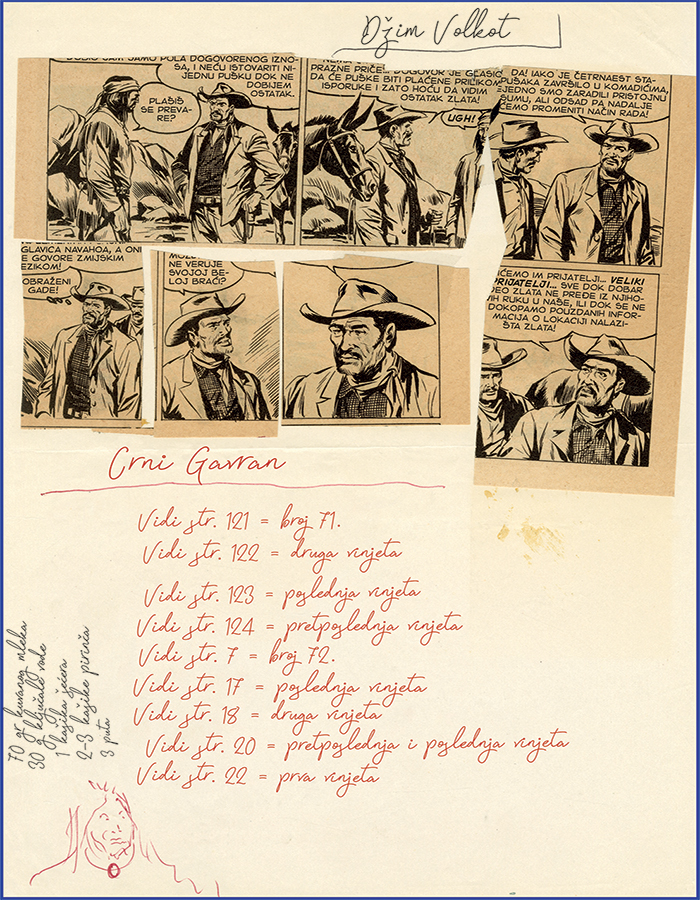 Džim Volkot
DOBIO SAM SAMO POLA DOGOVORENOG IZNO-
SA, I NEĆU ISTOVARITI NI-
JEDNU PUŠKU DOK NE
DOBIJEM
OSTATAK.
PLAŠIŠ
SE PREVA-
RE?
PRAZNE PRIČE... DOGOVOR JE GLASIO
DA ĆE PUŠKE BITI PLAĆENE PRILIKOM
ISPORUKE I ZATO HOĆU DA VIDIM
OSTATAK ZLATA!
UGH!
DA! IAKO JE ČETRNAEST STA-
PUŠAKA ZAVRŠILO U KOMADIĆIMA,
EJEDNO SMO ZARADILI PRISTOJNU
SUMU, ALI ODSAD PA NADALJE
ĆEMO PROMENITI NAČIN RADA!
GLAVICA NAVAHOA, A ONI
E GOVORE ZMIJSKIM
EZIKOM!
OBRAŽENI
GADE!
NE VERUJE
SVOJOJ BE-
LOJ BRAĆI?
IĆEMO IM PRIJATELJI... VELIKI
PRIJATELJI... SVE DOK DOBAR
DEO ZLATA NE PREĐE IZ NJIHO-
VIH RUKU U NAŠE, ILI DOK SE NE
DOKOPAMO POUZDANIH INFOR-
MACIJA O LOKACIJI NALAZI-
ŠTA ZLATA!
Crni Gavran
Vidi str. 121 = broj 71.
Vidi str. 122 = druga vinjeta
Vidi str. 123 = poslednja vinjeta
Vidi str. 124 = pretposlednja vinjeta
Vidi str. 7 = broj 72.
Vidi str. 17 = poslednja vinjeta
Vidi str. 18 = druga vinjeta
Vidi str. 20 = pretposlednja i poslednja vinjeta
Vidi str. 22 = prva vinjeta
70 gr kuvanog mleka
30 g ključale vode
1 kašika šećera
2-3 kašike pirinča
3 puta